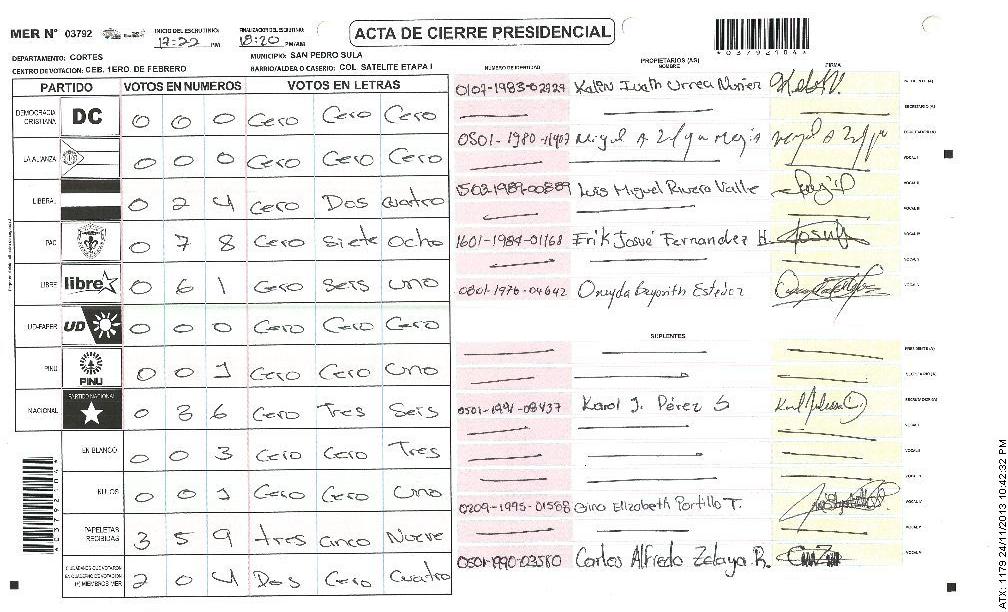 MER N° 03792
INICIO DEL ESCRUTINIO: 17:22 PM
FINALIZACION DEL ESCRUTINIO: 18:20 PM/AM
ACTA DE CIERRE PRESIDENCIAL
DEPARTAMENTO: CORTES
MUNICIPIO: SAN PEDRO SULA
CENTRO DE VOTACION: CEB. 1ERO. DE FEBRERO
BARRIO/ALDEA O CASERIO: COL SATELITE ETAPA I
PARTIDO VOTOS EN NUMEROS VOTOS EN LETRAS
DEMOCRACIA CRISTIANA DC 0 0 0 Cero Cero Cero
LA ALIANZA 0 0 0 Cero Cero Cero
LIBERAL 0 2 4 Cero Dos Cuatro
PAC 0 7 8 Cero Siete Ocho
LIBRE libre 0 6 1 Cero Seis Uno
UD-FAPER UD 0 0 0 Cero Cero Cero
PINU PINU 0 0 1 Cero Cero Uno
NACIONAL PARTIDO NACIONAL 0 3 6 Cero Tres Seis
EN BLANCO 0 0 3 Cero Cero Tres
NULOS 0 0 1 Cero Cero Uno
PAPELETAS RECIBIDAS 3 5 9 tres cinco Nueve
2 0 4 Dos Cero Cuatro
NUMERO DE IDENTIDAD
PROPIETARIOS (AS)
NOMBRE
FIRMA
Urrea
0501-1980-11407
1503-1989-00889 Luis Miguel Rivera Valle
1601-1984-01168 Erik Josué Fernandez H.
0801-1976-04642
SUPLENTES
0501-1991-08437 Karol J. Pérez S
0209-1995-01588 Gina Elizabeth Portillo T.
0501-1990-03580 Carlos Alfredo Zelaya R.
*03792104*
ATX: 1179 24/11/2013 10:42:32 PM